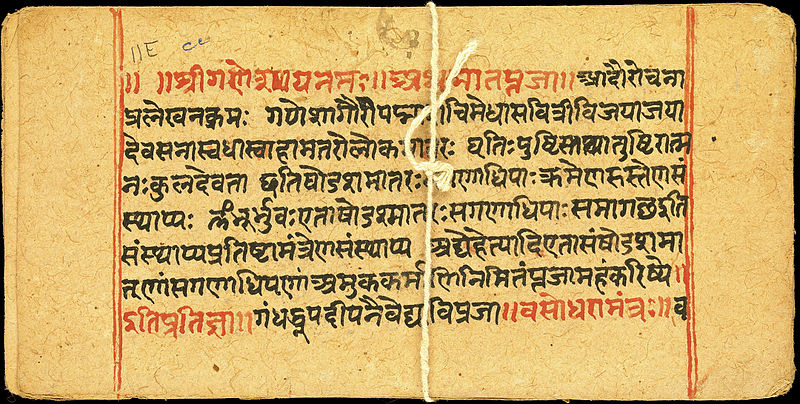 ॥ ॥श्रीगणेशायनमः॥ अथ मातृपूजा॥ आदौरोचना
प्रलेखनक्रमः गणेशगौरीपद्मा चिमेधासवित्रीविजयाजया
देवसेनास्वधास्वाहामातरोलोकमातरः धृतिःपुष्टिस्तथातुष्टिरात्म
नःकुलदेवता इतिषोडशमातरः गणाधिपाःक्रमेणहस्तेणसं
स्थाप्यः ॐभूर्भुवःएताषोडशमातरःसगणाधिपाःसमागछइति
संस्थाप्यप्रतिष्टामंत्रेणसंस्थाप्य अद्येहेत्यादिएतासंषोडशमा
तृणांसगणाधिपणां अमुककर्मणिनिमितंपूजामहंकरिष्ये॥
इतिप्रतिज्ञा॥ गंधधूपदीपनैवेद्यविपूजा॥वसोधारामंत्रः॥ व